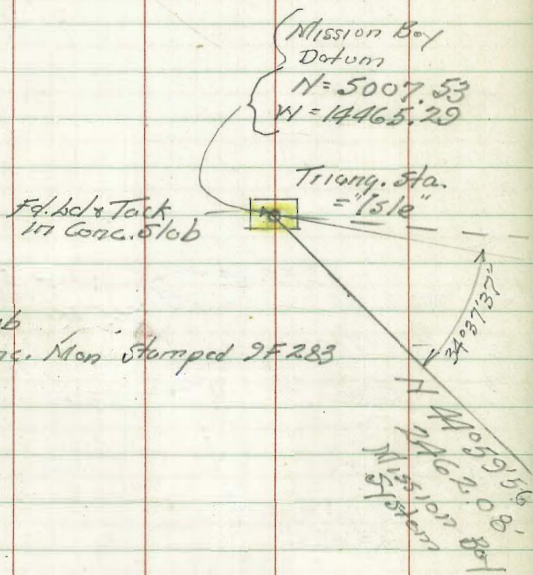 Mission Bay
Datum
N=5007.53
W=14465.29
Triang. Sta.
="Isle"
Fd. Ld & Tack
in Conc. Slab
34°37'37"
Mon stamped 9F283
N 44°59'56
2462.08'
Mission Bay
System